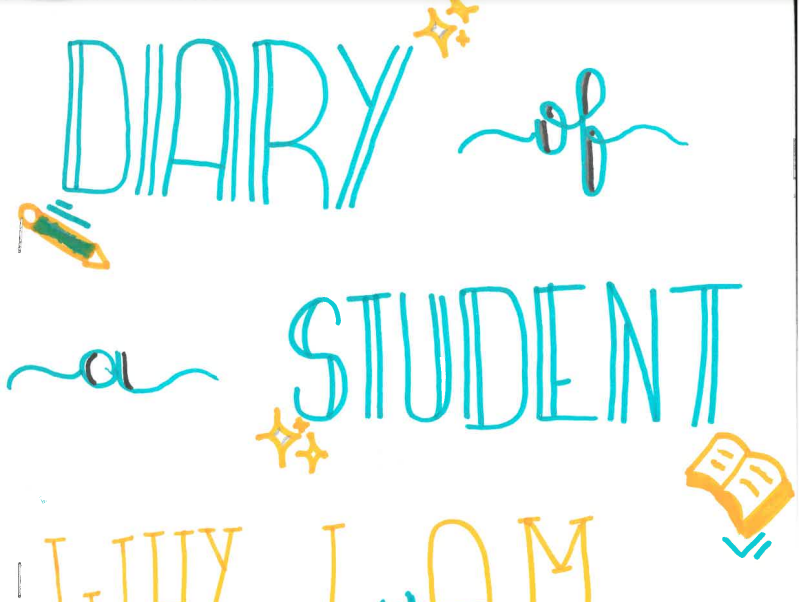 DIARY of
a STUDENT